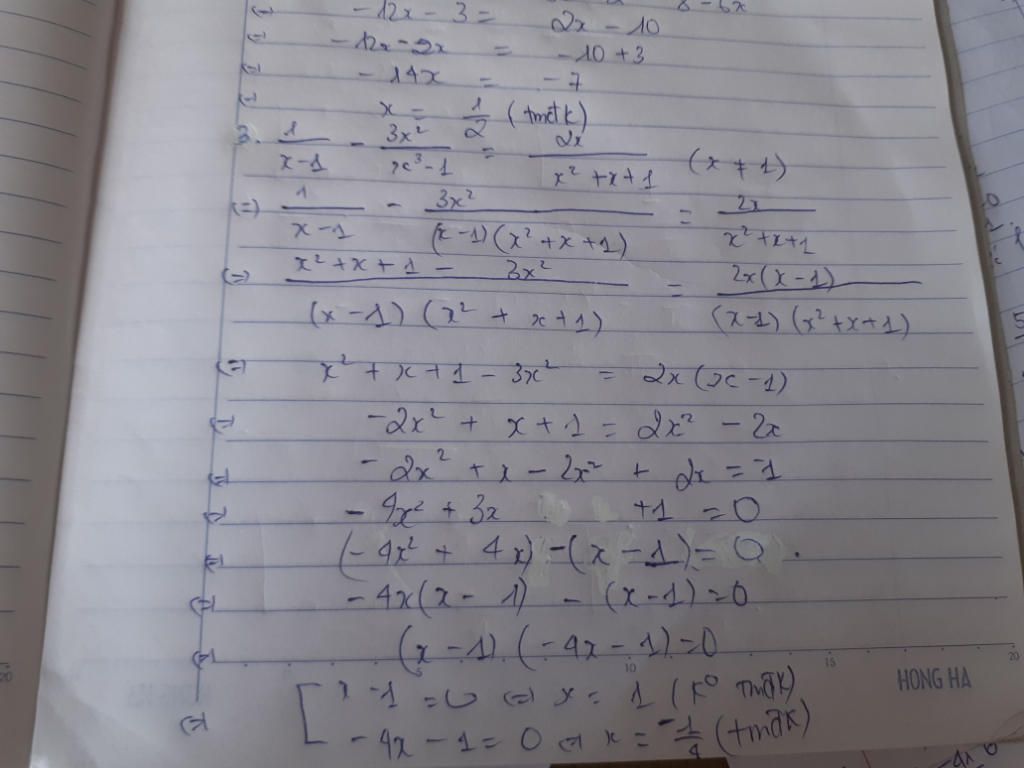 8 - 6x
⇔ -12x - 3 = 2x - 10
⇔ -12x - 2x = -10 + 3
⇔ -14x = -7
⇔ x = 1/2 (tmđk)
3. 1/(x-1) - 3x²/(x³-1) = 2x/(x²+x+1) (x ≠ 1)
⇔ 1/(x-1) - 3x²/((x-1)(x²+x+1)) = 2x/(x²+x+1)
⇔ (x²+x+1 - 3x²)/((x-1)(x²+x+1)) = 2x(x-1)/((x-1)(x²+x+1))
⇔ x² + x + 1 - 3x² = 2x(x-1)
⇔ -2x² + x + 1 = 2x² - 2x
⇔ -2x² + x - 2x² + 2x = -1
⇔ -4x² + 3x + 1 = 0
⇔ (-4x² + 4x) - (x - 1) = 0.
⇔ -4x(x - 1) - (x-1) = 0
⇔ (x-1)(-4x-1) = 0
⇔ [ x - 1 = 0 ⇔ x = 1 (k⁰ tmđk)
-4x - 1 = 0 ⇔ x = -1/4 (tmđk)
10 15 20
HONG HA